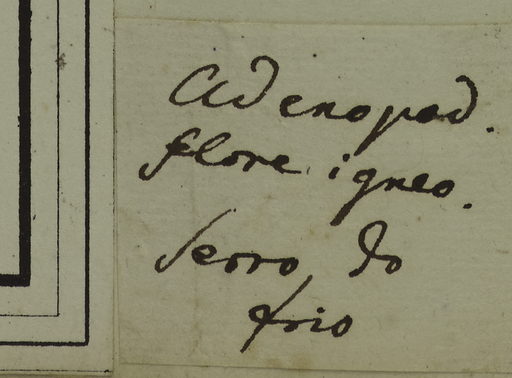 Adenopod.
flore igneo.
Serro do
frio